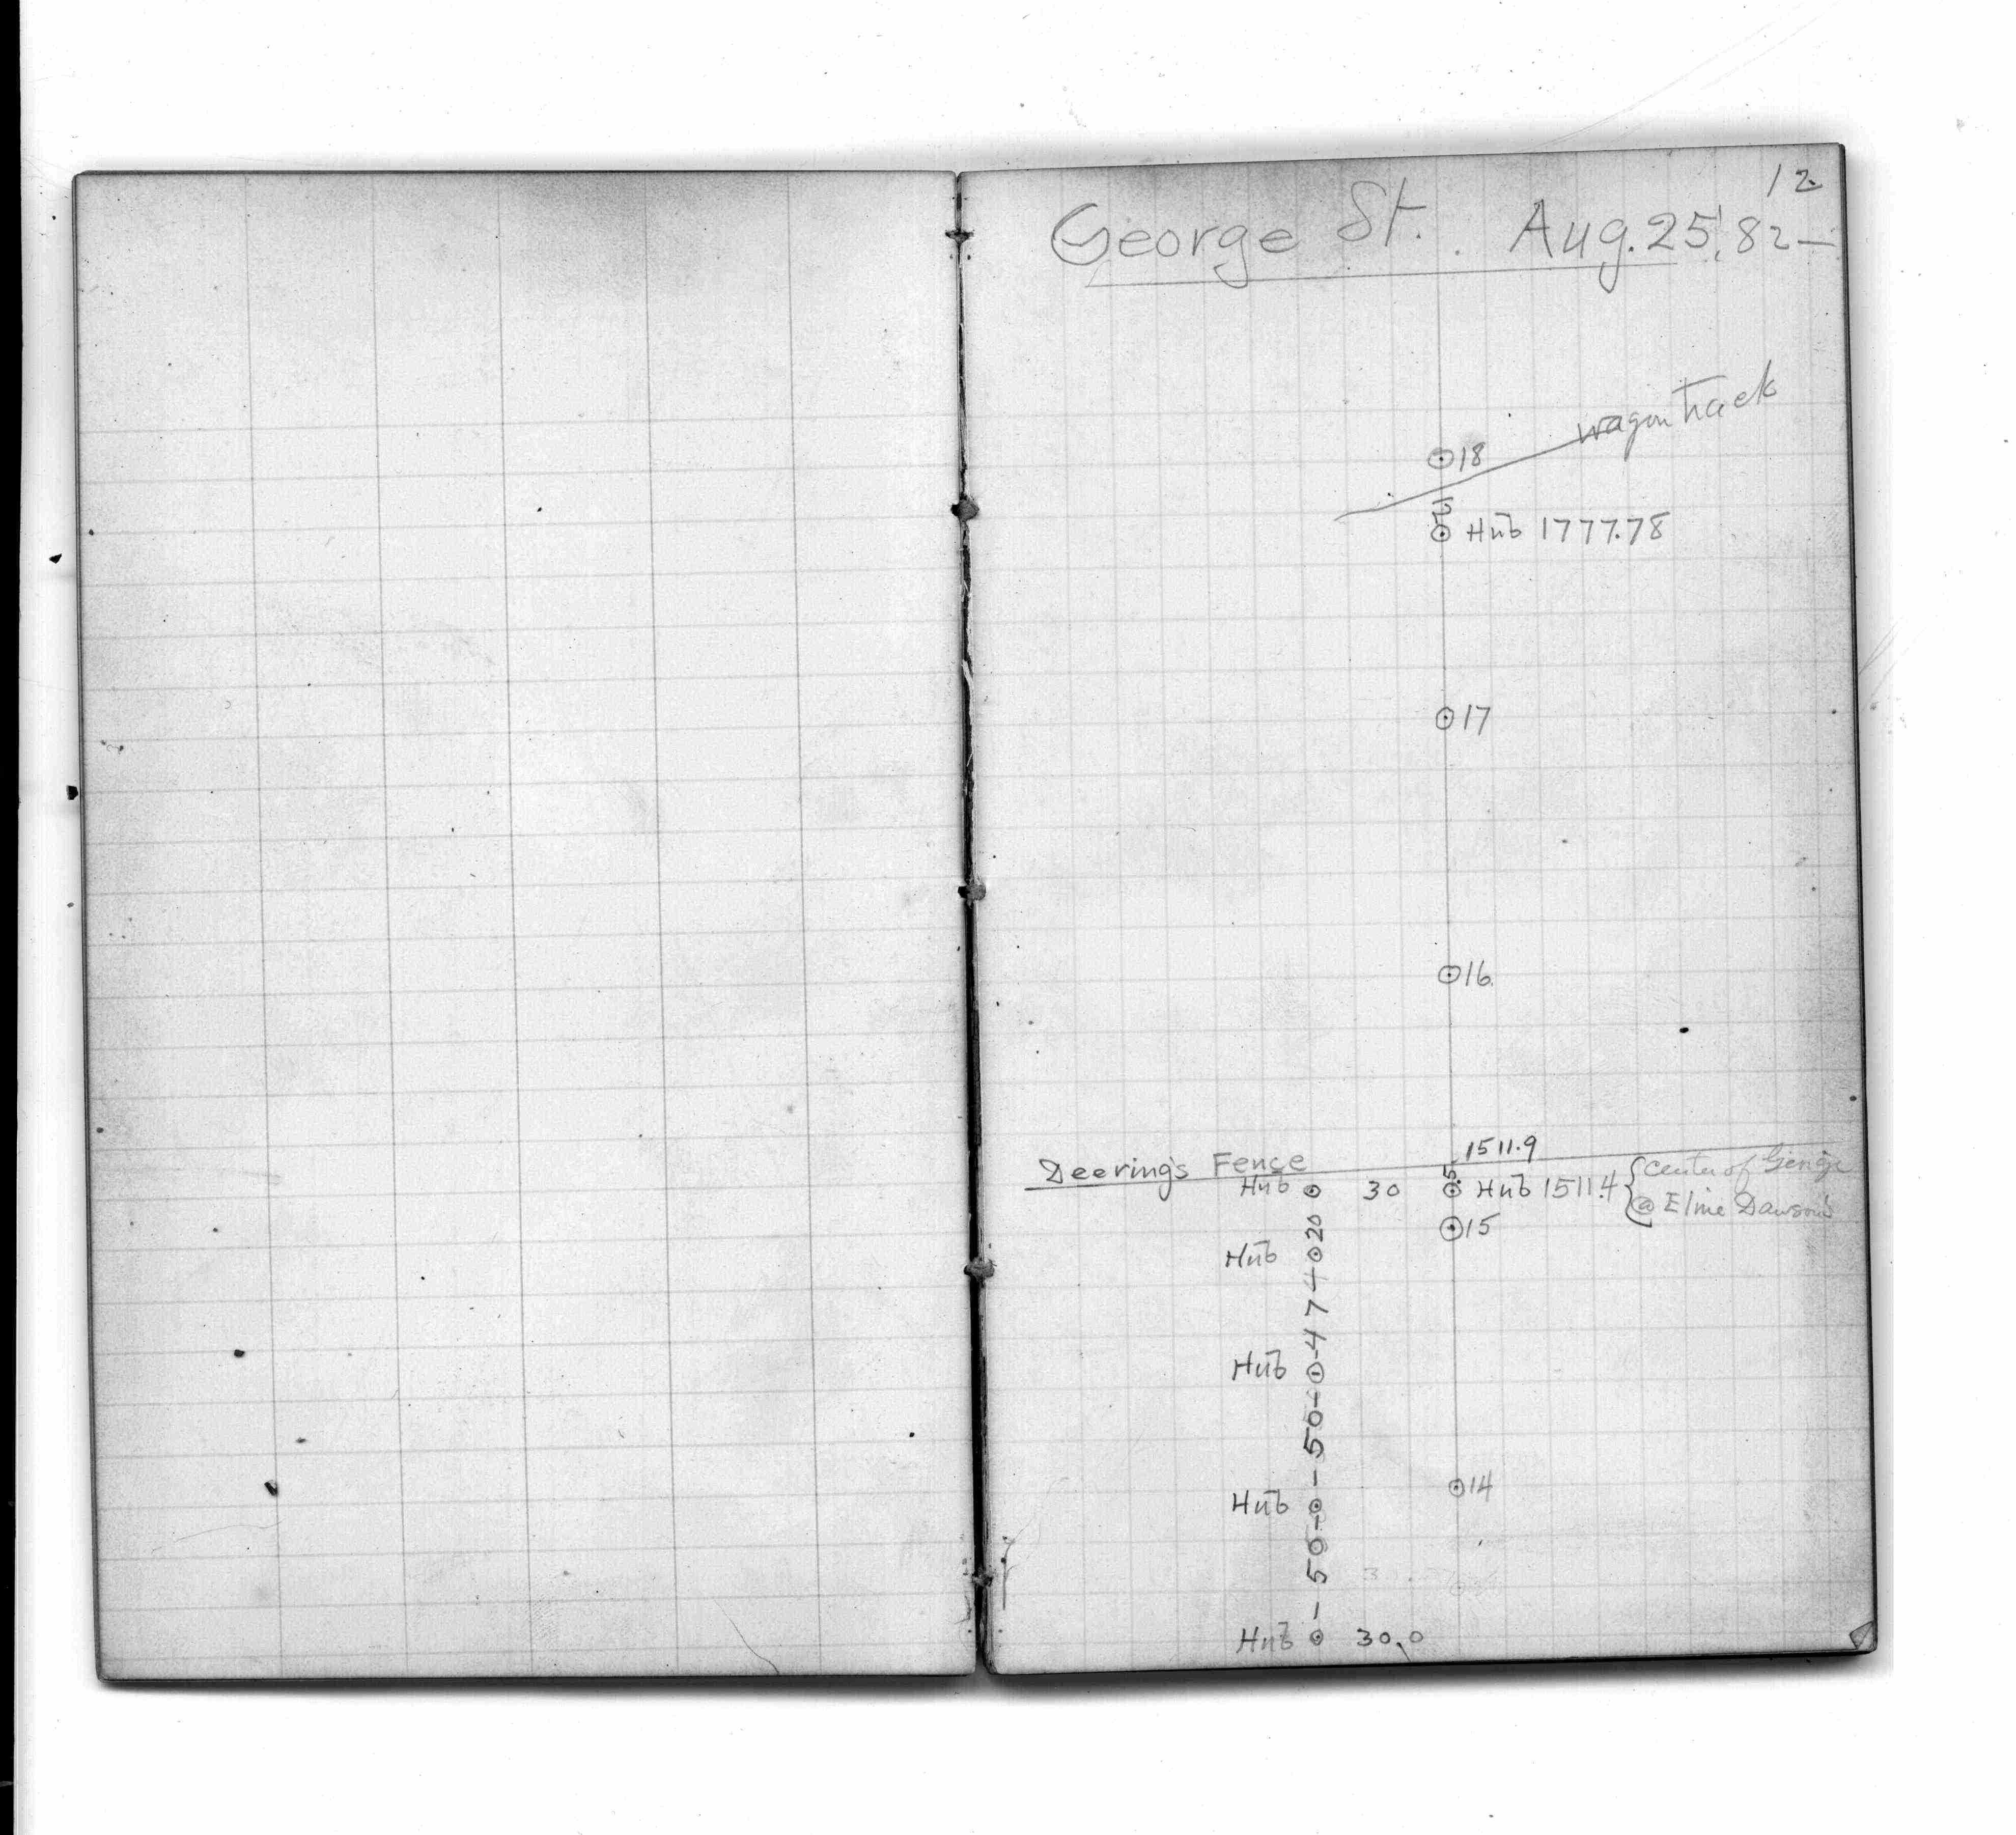 12
George St. Aug. 25, '82
wagon track
18
15
Hub 1777.78
17
16
1511.9
Deering's Fence
.5
Hub 30 Hub 1511.4 { center of George
@ E line Dawson's
15
20
Hub
47
Hub
50
14
Hub
50
Hub 30.0